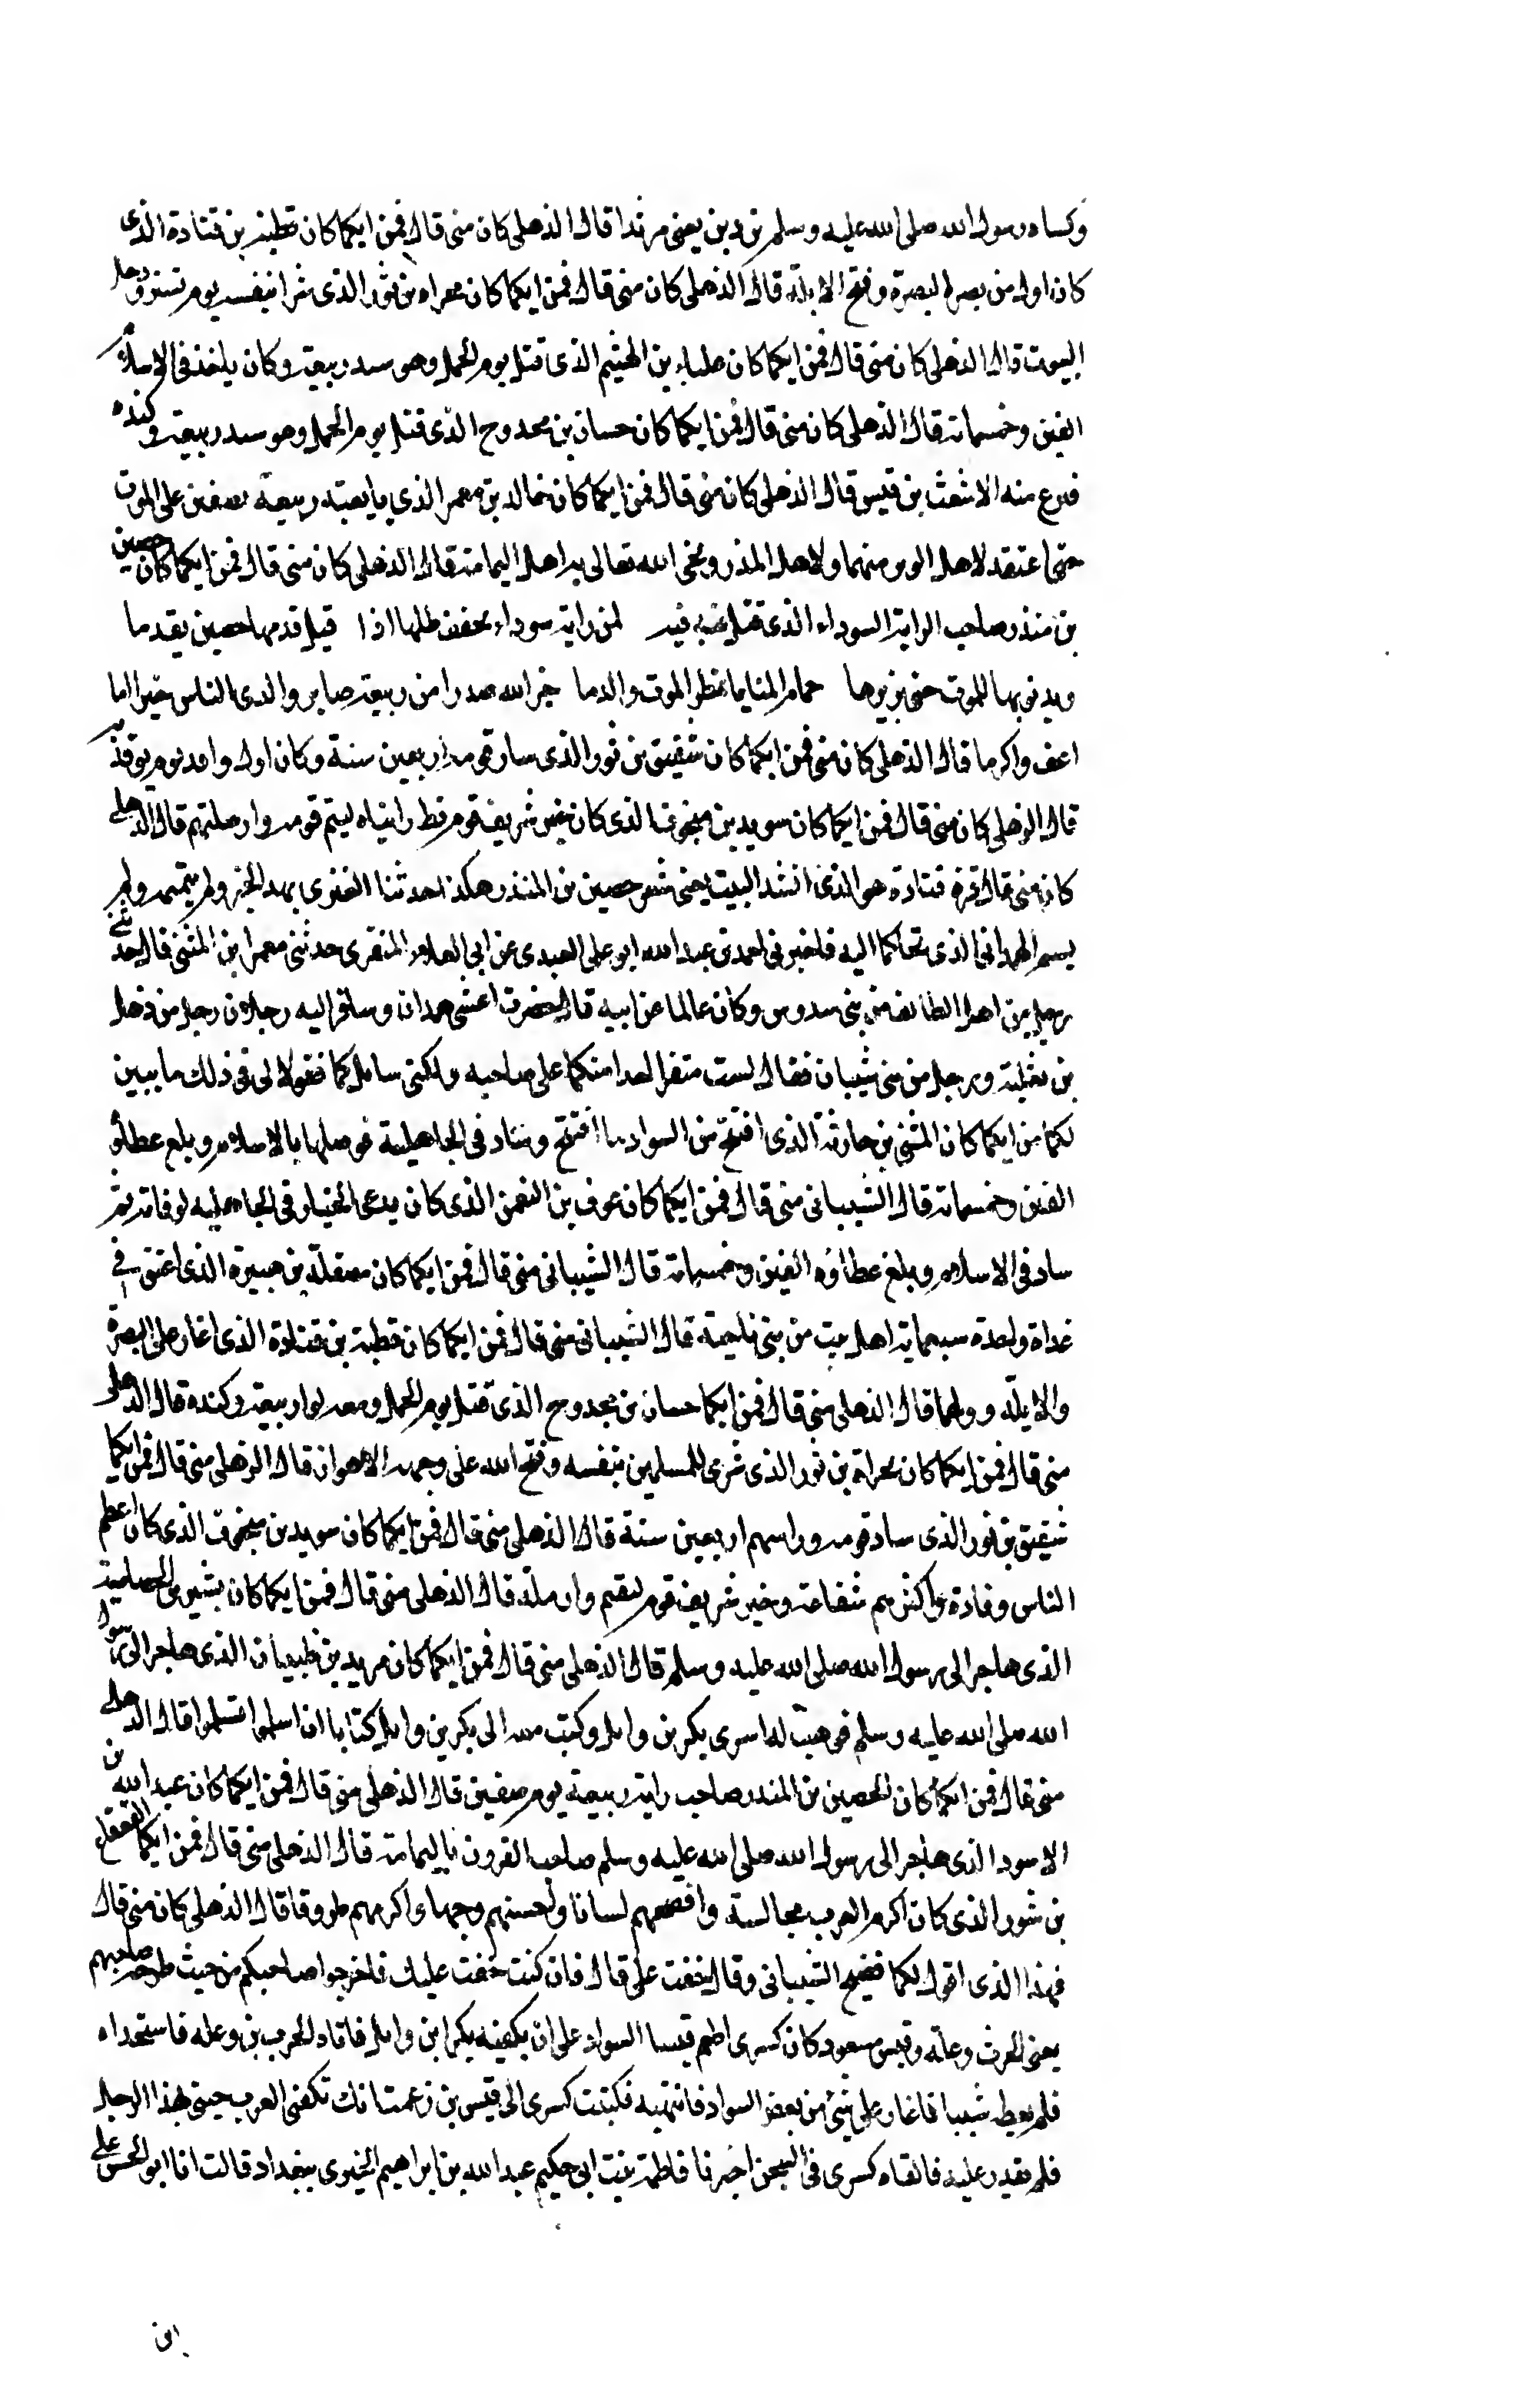 وكساه رسول الله صلى الله عليه وسلم بردين يعنى مرثدا قال الذهلى كان منى قال فمن ايكما كان قطبه بن قتادة الذى
كان اول من بصر البصرة وفتح الابلة قال الذهلى كان منى قال فمن ايكما كان مجراه بن ثور الذى شرا بنفسه يوم تستر
البيوت قال الذهلى كان منى قال فمن ايكما كان علباء بن الهيثم الذى قتل يوم الجمل وهو سيد ربيعة وكان ياخذ فى الاسلام
الفين وخمسمائه قال الذهلى كان منى قال فمن ايكما كان حسان بن محدوج الذى قتل يوم الجمل وهو سيد ربيعة وكنده
منه الاشعث بن قيس قال الذهلى كان منى قال فمن ايكما كان خالد بن معمر الذي بايعته ربيعة بصفين على الموت
حتى اعتقد لاهل الوبر منهما ولاهل المدر ونجى الله تعالى به اهل اليمامة قال الذهلى كان منى قال فمن ايكما كان حصين
بن منذر صاحب الراية السوداء الذى قيل فيه لمن راية سوداء يخفق ظلها اذا قيل قدمها حصين تقدما
ويدنو بها للموت حتى يزيرها حمام المنايا تقطر الموت والدما جزا الله صدرا من ربيعة صابروا لدى الناس خيرا ما
اعف واكرما قال الذهلى كان منى فمن ايكما كان شقيق بن ثور الذى ساد قومه اربعين سنة وكان اول وافد يوم
قال الذهلى كان منى قال فمن ايكما كان سويد بن منجوف الذى كان خير شريف قوم قط راتياه ليتيم قومه وارملتهم قال الذهلى
كان منى قال قرة قتادة هو الذى انشد البيت يعنى شعر حصين بن المنذر هكذا حدثنا الغنوى بهذا الخبر ولم يتممه ولم
يسم الهمدانى الذى تحاكما اليه فاخبرنى احمد بن عبد الله ابو على العبدى عن ابى العلاء المنقرى حدثنى معمر ابن المثنى قال حدثنى
رجل من اهل الطائف من بنى سدوس وكان عالما عن ابيه قال حضرت اعشى همدان وسافر اليه رجلان رجل من ذهل
بن ثعلبة ورجل من بنى شيبان فقال لست منفرا احدا منكما على صاحبه ولكنى سائلكما فقولا لى فى ذلك ما يبين
لكما من ايكما كان المثنى بن حارثة الذى افتتح من السواد ما افتتح وساد فى الجاهلية فوصلها بالاسلام وبلغ عطاؤه
الفين وخمسمائه قال الشيبانى منى قال فمن ايكما كان عوف بن النعمن الذى كان يدعى الخيار فى الجاهلية لوفائه ثم
ساد فى الاسلام وبلغ عطاؤه الفين وخمسمائه قال الشيبانى منى قال فمن ايكما كان مصقلة بن هبيرة الذى اعتق فى
غداة واحدة سبعماية اهل بيت من بنى ناجية قال الشيبانى منى قال فمن ايكما كان قطبة بن قتادة الذى اغار على البصرة
والابلة ووليهما قال الذهلى منى قال فمن ايكما حسان بن محدوج الذى قتل يوم الجمل ومعه لوا ربيعة وكندة قال الذهلى
منى قال فمن ايكما كان مجراة بن ثور الذى شرى للمسلمين بنفسه وفتح الله على وجهه الاهواز قال الذهلى منى قال فمن ايكما
شقيق بن ثور الذى ساد قومه وراسهم اربعين سنة قال الذهلى منى قال فمن ايكما كان سويد بن منجوف الذى كان اعظم
الناس وفادة واكثرهم شفاعة وخير شريف قوم ليتيم وارملة قال الذهلى منى قال فمن ايكما كان بشير بن الخصاصية
الذى هاجر الى رسول الله صلى الله عليه وسلم قال الذهلى منى قال فمن ايكما كان مريد بن ظبيان الذى هاجر الى رسول
الله صلى الله عليه وسلم فوهب له اسرى بكر بن وايل وكتب معه الى بكر بن وايل كتابا ان اسلموا تسلموا قال الذهلى
منى قال فمن ايكما كان الحصين بن المنذر صاحب راية ربيعة يوم صفين قال الذهلى منى قال فمن ايكما كان عبد الله بن
الاسود الذى هاجر الى رسول الله صلى الله عليه وسلم صاحب القرون باليمامة قال الذهلى منى قال فمن ايكما القعقاع
بن شور الذى كان اكرم العرب مجالسة وافصحهم لسانا واحسنهم وجها واكرمهم طروقا قال الذهلى كان منى قال
فهذا الذى اقول لكما فضج الشيبانى وقال حفت على قال فان كنت حفت عليك فاخرجوا صاحبكم من حيث طرحه صاحبهم
يعنى الحرث وعلة وقيس مسعود كان كسرى اطعم قيسا السواد على ان يكفيه بكر ابن وايل فاتاه الحرب بن وعله فاستجداه
فلم يعطه شيبا فاغار على شئ من بعض السواد فانتهبه فكتبت كسرى الى قيس بن زعمت انك تكفنى العرب حتى هذا الرجل
فلم يقدر عليه فالقاه كسرى فى السجن اخبرنا فاطمة بنت ابى حكيم عبد الله بن ابراهيم الخبرى ببغداد قالت انا ابو الحسن على
ابن